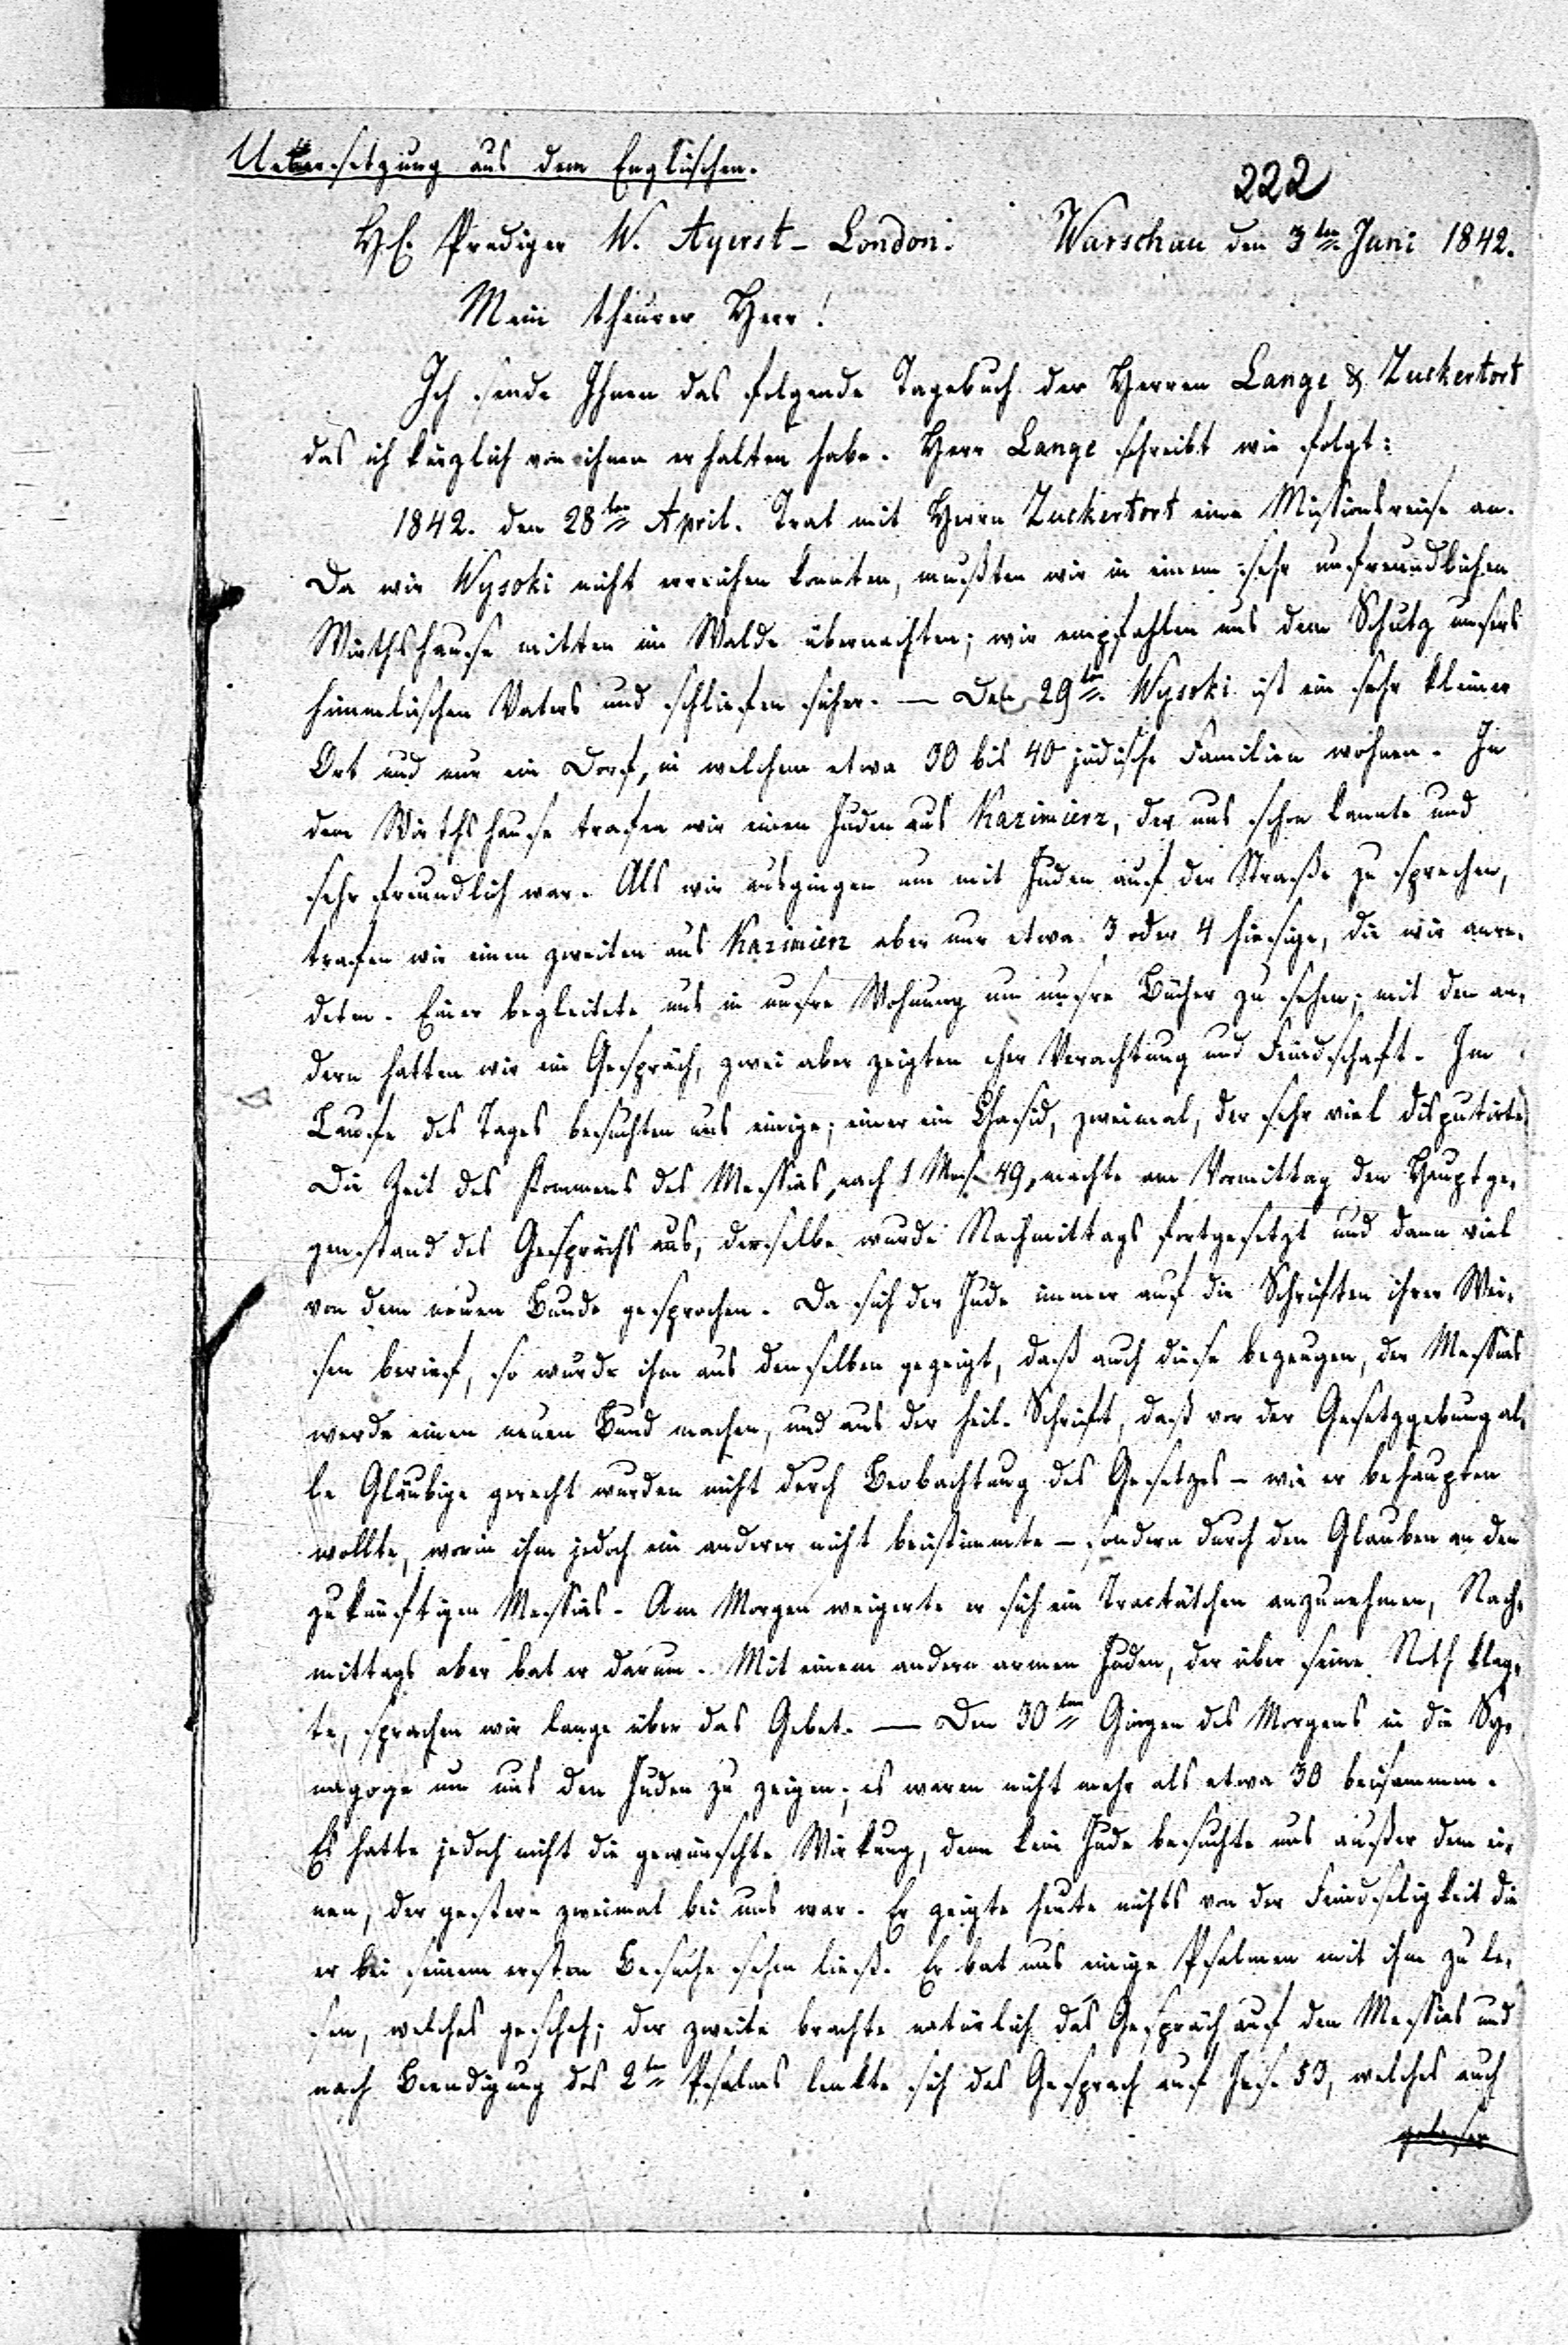 Uebersetzung aus dem Englischen.
222
H.E. Prediger W. Ayerst - London. Warschau den 3ten Juni 1842.
Mein theurer Herr!
Ich sende Ihnen das folgende Tagebuch der Herren Lange & Zuckertort
das ich kürzlich von ihnen erhalten habe. Herr Lange schreibt wie folgt:
1842. den 28ten April. Trat mit Herrn Zuckertort eine Missionsreise an.
Da wir Wysoki nicht erreichen konnten, mußten wir in einem sehr unfreundlichen
Wirthshause mitten im Walde übernachten; wir empfahlen uns dem Schutz unsers
himmlischen Vaters und schliefen sicher. — Den 29ten. Wysoki ist ein sehr kleiner
Ort und nur ein Dorf, in welchem etwa 30 bis 40 jüdische Familien wohnen. In
dem Wirthshause trafen wir einen Juden aus Kazimierz, der uns schon kannte und
sehr freundlich war. Als wir ausgingen um mit Juden auf der Straße zu sprechen,
trafen wir einen zweiten aus Kazimierz aber nur etwa 3 oder 4 hiesige, die wir anre-
deten. Einer begleitete uns in unsre Wohnung um unsre Bücher zu sehen; mit den an-
dern hatten wir ein Gespräch, zwei aber zeigten eher Verachtung und Feindschaft. Im
Laufe des Tages besuchten uns einige; einer ein Chasid, zweimal, der sehr viel disputirte.
Die Zeit des Kommens des Messias, nach 1 Mos. 49, machte am Vormittag den Hauptge-
genstand des Gesprächs aus, derselbe wurde Nachmittags fortgesetzt und dann viel
von dem neuen Bunde gesprochen. Da sich der Jude immer auf die Schriften ihrer Wei-
sen berief, so wurde ihm aus denselben gezeigt, daß auch diese bezeugen, der Messias
werde einen neuen Bund machen, und aus der heil. Schrift, daß vor der Gesetzgebung al-
le Gläubige gerecht wurden nicht durch Beobachtung des Gesetzes - wie er behaupten
wollte, worin ihm jedoch ein anderer nicht beistimmte - sondern durch den Glauben an den
zukünftigen Messias. Am Morgen weigerte er sich ein Tractätchen anzunehmen, Nach-
mittags aber bat er darum. Mit einem andern armen Juden, der über seine Noth klag-
te, sprachen wir lange über das Gebet. — Den 30ten Gingen des Morgens in die Sy-
nagoge um uns den Juden zu zeigen; es waren nicht mehr als etwa 30 beisammen.
Es hatte jedoch nicht die gewünschte Wirkung, denn kein Jude besuchte uns außer dem ei-
nen, der gestern zweimal bei uns war. Er zeigte heute nichts von der Feindseligkeit die
er bei seinem ersten Besuche sehen ließ. Er bat uns einige Psalmen mit ihm zu le-
sen, welches geschah; der zweite brachte natürlich das Gespräch auf den Messias und
nach Beendigung des 2ten Psalms lenkte sich das Gesprach auf Jes. 53, welches auch
gelesen